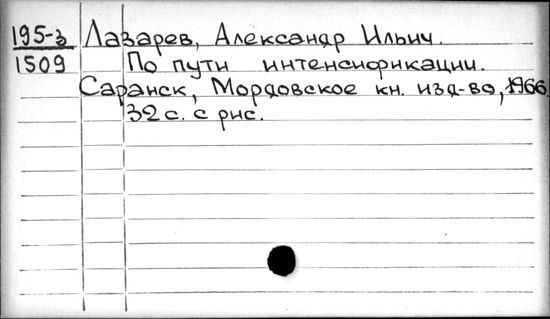 195-3 Лазарев, Александр Ильич.
1509 По пути интенсификации.
Саранск, Мордовское кн. изд-во, 1966.
32 с. с рис.